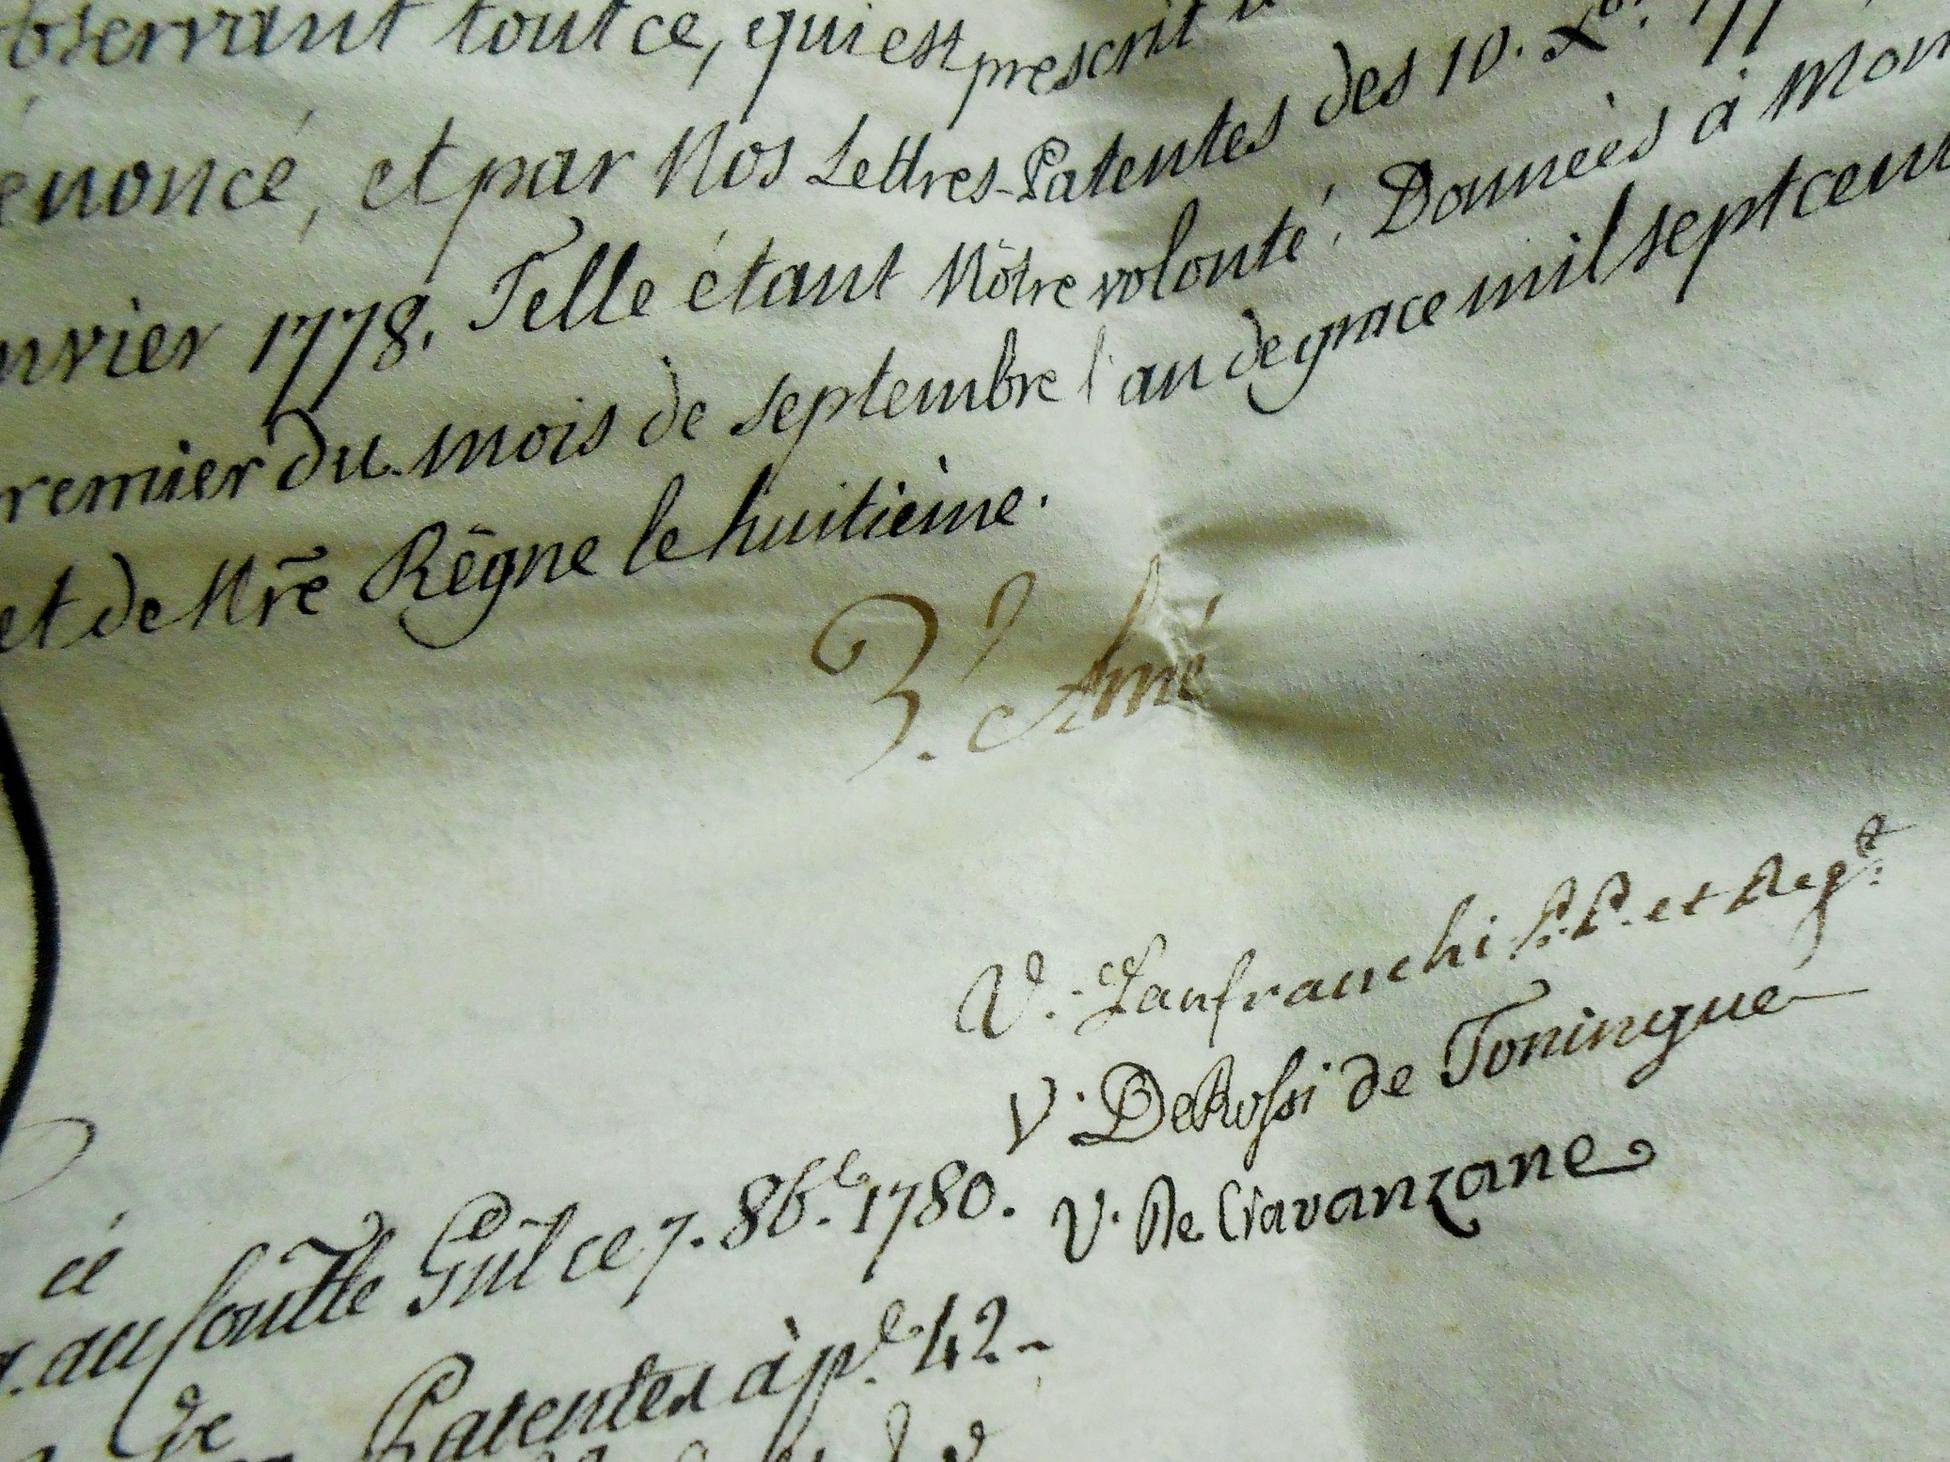 observant tout ce, qui est prescrit
énoncé, et par Nos Lettres-Patentes des 10. Xbr. 177
nvier 1778. Telle étant Nôtre volonté. Données à Mon
remier du mois de septembre l'an de grace mil sept cent
et de Nre Règne le huitième.
V. Amé
V. Lanfranchi P.P. et Regt.
V. DeRossi de Toningue
V. De Cravanzane
au soultte Gñl ce 7. 8b.e 1780.
de
Patentes à p.e 42-